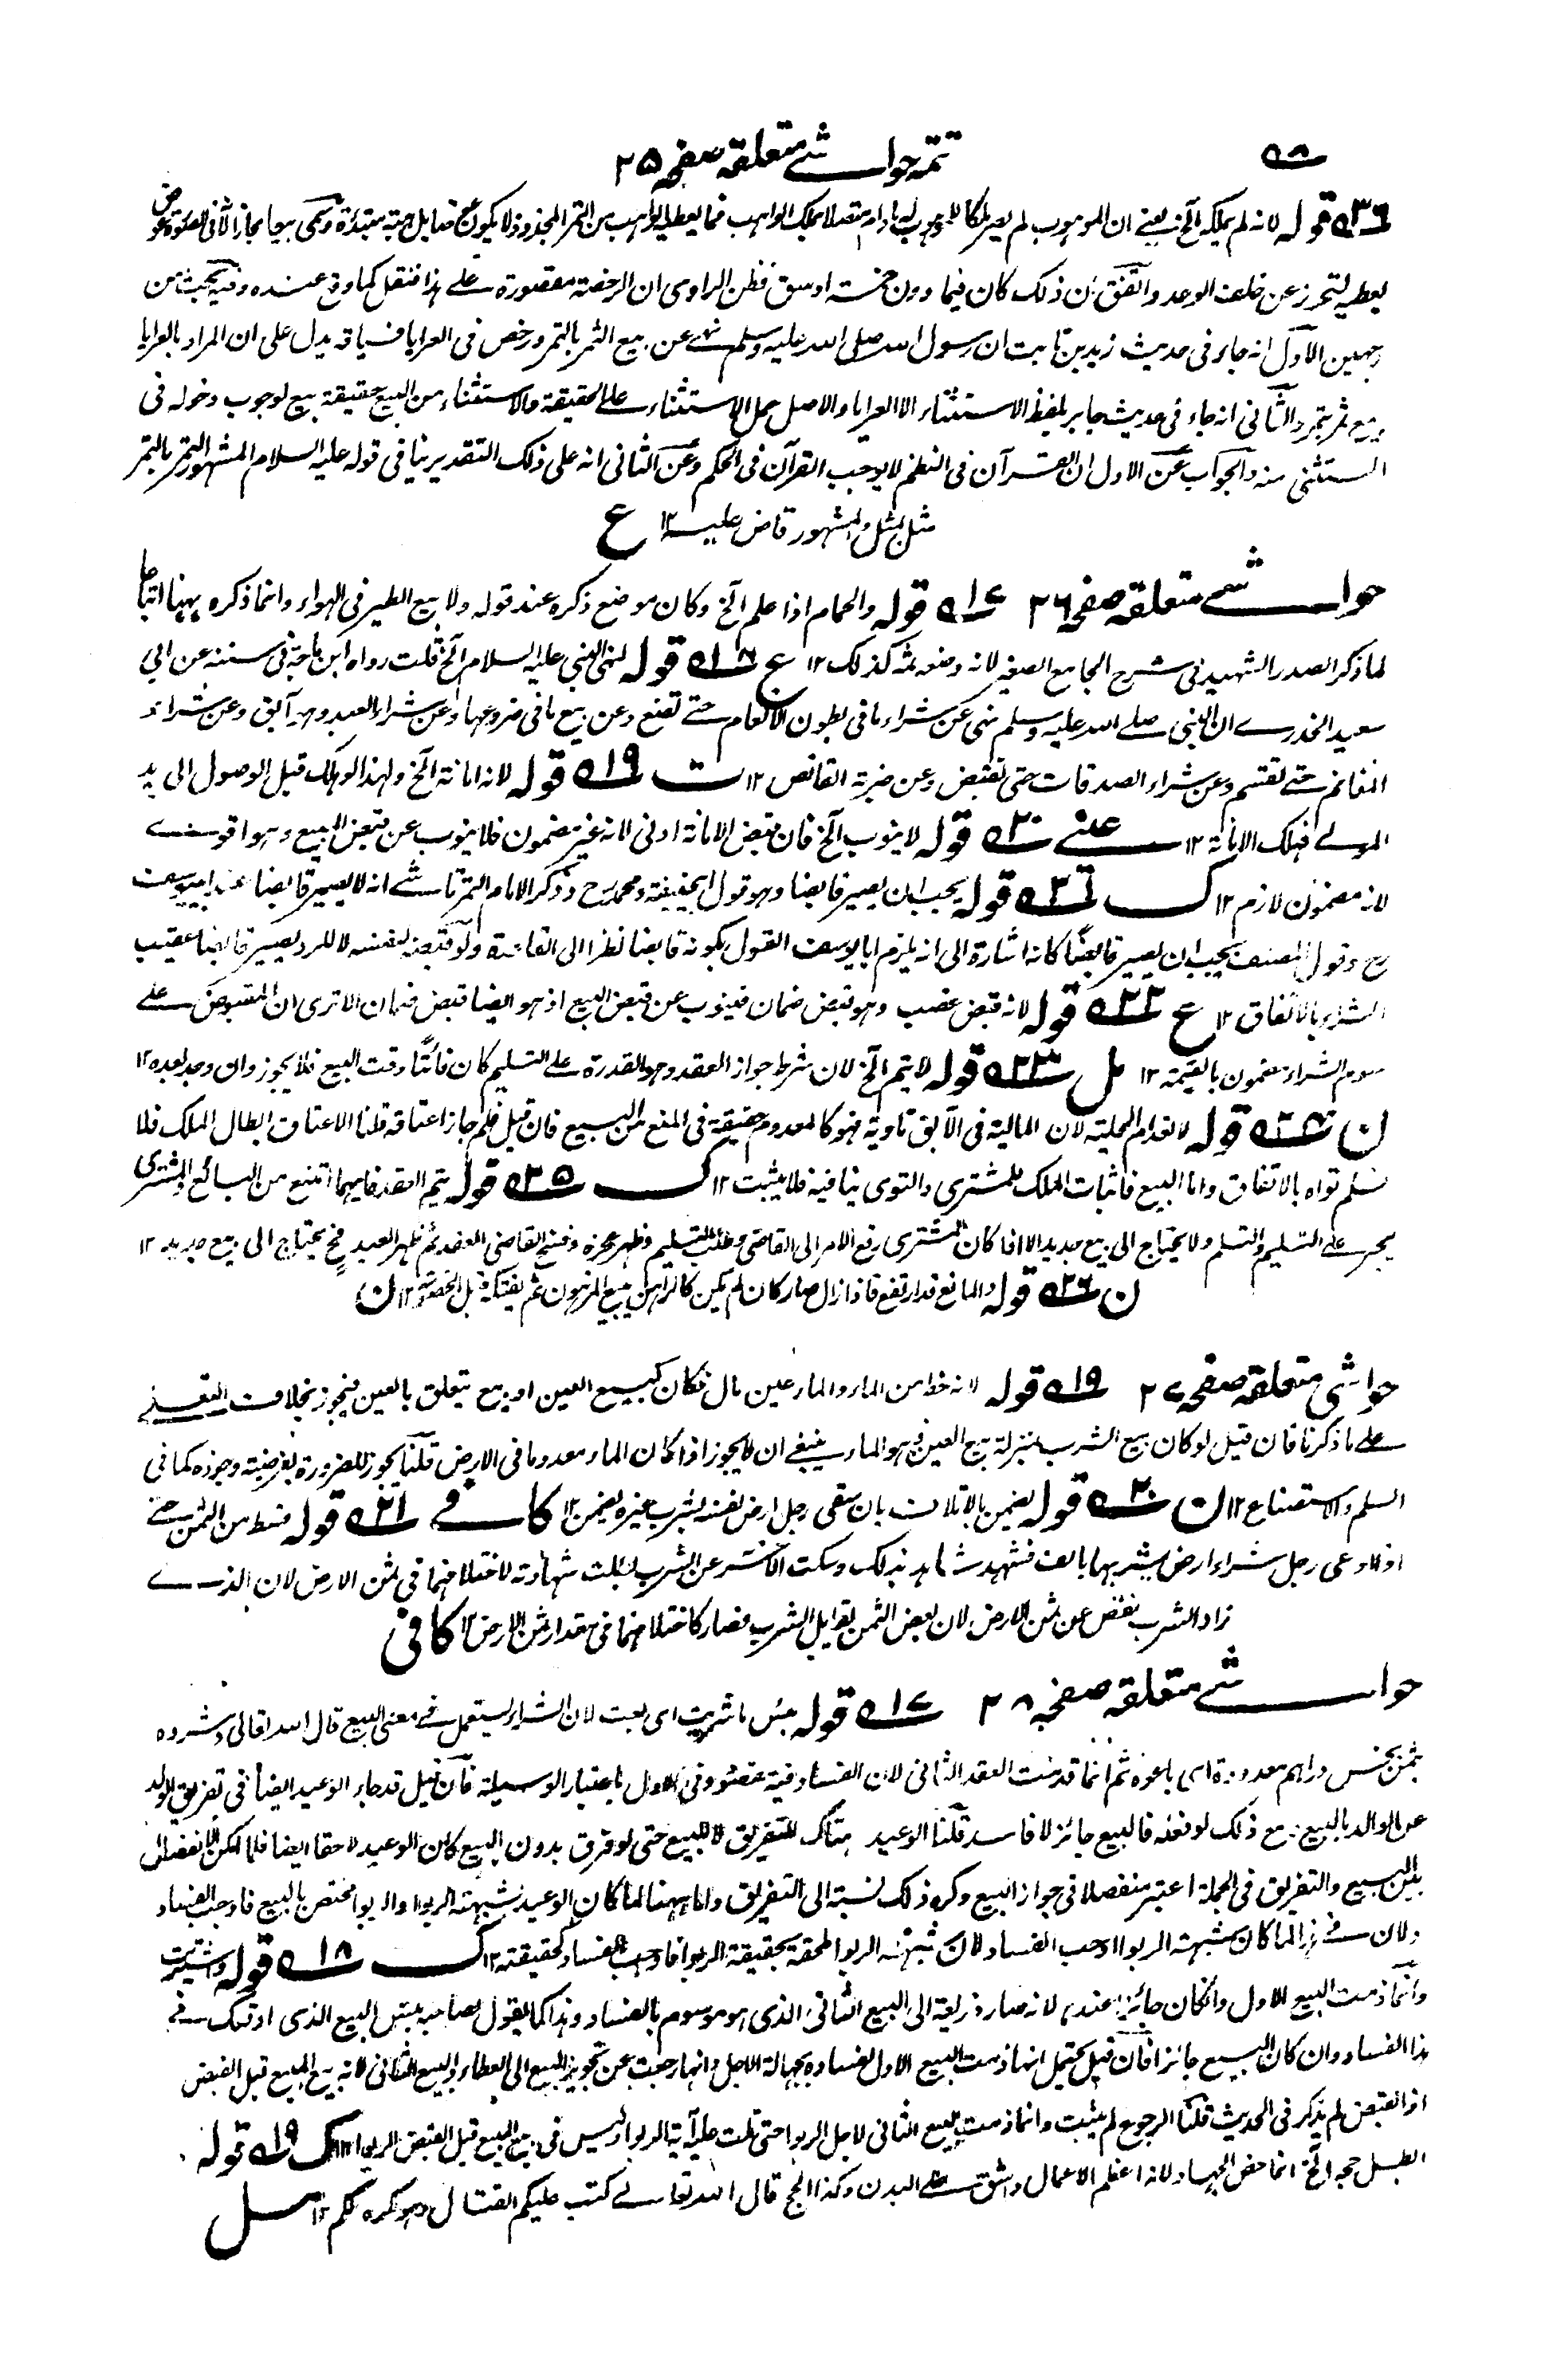 تتمہ حواشے متعلقہ صفحہ ۲۵
۵۸
۳۶ قولہ لانہ لم یملکہ الخ یعنے ان الموہوب لم یصر ملکا للموہوب لہ مادام متصلا بملک الواہب فما یعطیہ الواہب من التمر المجذوذ لا یکون عوضا بل ہبۃ مبتدئۃ وسمی بیعا مجازا لانہ فی الصورۃ عوض
یعطیہ لتحرز عن خلف الوعد واتفق ان ذلک کان فیما دون خمسۃ اوسق فظن الراوی ان الرخصۃ مقصورۃ علے ہذا فنقل کما وقع عندہ وفیہ بحث من
وجہین الاول انہ جاء فی حدیث زید بن ثابت ان رسول اللہ صلی اللہ علیہ وسلم نہے عن بیع الثمر بالتمر ورخص فی العرایا فسیاقہ یدل علی ان المراد بالعرایا
بیع ثمر بتمر والثانی انہ جاء فی حدیث جابر بلفظ الاستثناء الا العرایا والاصل حمل الاستثناء علے الحقیقۃ والاستثناء من البیع حقیقۃ بیع لوجوب دخولہ فی
المستثنی منہ والجواب عن الاول ان القرآن فی النظم لا یوجب القرآن فی الحکم وعن الثانی انہ علی ذلک التقدیر ینافی قولہ علیہ السلام المشہور التمر بالتمر
مثل بمثل والمشہور قاض علیہ ۱۲ ع
حواشے متعلقہ صفحہ ۲۶ ۱۷ قولہ والحمام اذا علم الخ وکان موضع ذکرہ عند قولہ ولا بیع الطیر فی الہواء وانما ذکرہ ہہنا اتباعا
لما ذکر الصدر الشہید فی شرح الجامع الصغیر لانہ وضعہ ثمہ کذلک ۱۲ ع ۱۸ قولہ لنہی النبی علیہ السلام الخ قلت رواہ ابن ماجۃ فی سننہ عن ابی
سعید الخدرے ان النبی صلے اللہ علیہ وسلم نہی عن شراء ما فی بطون الانعام حتے تضع وعن بیع ما فی ضروعہا وعن شراء العبد وہو آبق وعن شراء
المغانم حتے تقسم وعن شراء الصدقات حتی تقبض وعن ضربۃ القانص ۱۲ ت ۱۹ قولہ لانہ امانۃ الخ ولہذا لو ہلک قبل الوصول الی ید
المولے فہلک الامانۃ ۱۲ عنے ۲۰ قولہ لا ینوب الخ فان قبض الامانۃ ادنی لانہ غیر مضمون فلا ینوب عن قبض البیع وہو اقوے
لانہ مضمون لازم ۱۲ ک ۲۱ قولہ یجب ان یصیر قابضا وہو قول ابیحنیفۃ ومحمد رح وذکر الامام التمرتاشے انہ لا یصیر قابضا عند ابیوسف
رح وقول المصنف یجب ان یصیر قابضا کانہ اشارۃ الی انہ یلزم ابا یوسف القول بکونہ قابضا نظرا الی القاعدۃ ولو قبضہ لنفسہ لا للرد یصیر قابضا عقیب
الشراء بالاتفاق ۱۲ ع ۲۲ قولہ لانہ قبض غصب وہو قبض ضمان فینوب عن قبض البیع اذ ہو ایضا قبض ضمان الا تری ان المقبوض علے
سوم الشراء مضمون بالقیمۃ ۱۲ مل ۲۳ قولہ لا یتم الخ لان شرط جواز العقد وہو القدرۃ علے التسلیم کان فائتا وقت البیع فلا یجوز وان وجد بعدہ ۱۲
ن ۲۴ قولہ لانعدام المحلیۃ لان المالیۃ فی الآبق تاویۃ فہو کالمعدوم حقیقۃ فی المنع من البیع فان قیل فلم جاز اعتاقہ قلنا الاعتاق ابطال الملک فلا
نسلم تواہ بالاتفاق واما البیع فاثبات الملک للمشتری والتوی ینافیہ فلا یثبت ۱۲ ک ۲۵ قولہ یتم العقد فایہما امتنع من البائع والمشتری
یجبر علے التسلیم والتسلم ولا یحتاج الی بیع جدید الا اذا کان المشتری رفع الامر الی القاضی وطلب التسلیم وظہر عجزہ وفسخ القاضی العقد ثم ظہر العبد فح یحتاج الی بیع جدید ۱۲
ن ۲۶ قولہ والمانع قد ارتفع فاذا زال صار کان لم یکن کالراہن یبیع المرہون ثم یفتکہ قبل الخصومۃ ۱۲ ن
حواشی متعلقہ صفحہ ۲۷ ۱۹ قولہ لانہ حظ من الماء والماء عین مال فکان کبیع العین او بیع یتعلق بالعین فیجوز بخلاف التعلے
علے ما ذکرنا فان قیل لو کان بیع الشرب بمنزلۃ بیع العین وہو الماء ینبغے ان لا یجوز اذا کان الماء معدوما فی الارض قلنا یجوز للضرورۃ بفرضیۃ وجودہ کما فی
السلم والاستصناع ۱۲ ن ۲۰ قولہ یضمن بالاتلاف بان سقی رجل ارض نفسہ بشرب غیرہ یضمن ۱۲ کافے ۲۱ قولہ قسط من الثمن حتے
اذا ادعی رجل شراء ارض بشربہا بالف فشہد شاہد بذلک وسکت الآخر عن الشرب بطلت شہادتہ لاختلافہما فی ثمن الارض لان الذے
زاد الشرب نقص عن ثمن الارض لان بعض الثمن یقابل الشرب فصار کاختلافہما فی مقدار ثمن الارض ۱۲ کافی
حواشے متعلقہ صفحہ ۲۸ ۱۷ قولہ بئس ما شریت ای بعت لان الشراء یستعمل فے معنی البیع قال اللہ تعالی وشروہ
بثمن بخس دراہم معدودۃ ای باعوہ ثم انما قدمت العقد الثانی لان الفساد فیہ مقصود وفی الاول باعتبار الوسیلۃ فان قیل قد جاء الوعید ایضا فی تفریق الولد
عن الوالد بالبیع مع ذلک لو فعلہ فالبیع جائز لا فاسد قلنا الوعید ہناک للتفریق لا للبیع حتی لو فرق بدون البیع کان الوعید لاحقا ایضا فلما امکن الانفصال
بین البیع والتفریق فی الجملۃ اعتبر منفصلا فی جواز البیع وکرہ ذلک نسبۃ الی التفریق واما ہہنا لما کان الوعید لشبہۃ الربوا والربوا مختص بالبیع فاوجب الفساد
ولان فے ہذا لما کان شبہۃ الربوا اوجب الفساد لان شبہۃ الربوا ملحقۃ بحقیقۃ الربوا فاوجب الفساد کحقیقتہ ۱۲ ک ۱۸ قولہ واشتریت
وانما ذمت البیع الاول وان کان جائزا عندہا لانہ صار ذریعۃ الی البیع الثانی الذی ہو موسوم بالفساد وہذا کما یقول لصاحبہ بئس البیع الذی اوقعک فے
ہذا الفساد وان کان البیع جائزا فان قیل یحتمل انہا ذمت البیع الاول لفسادہ بجہالۃ الاجل وانہا رجعت عن تجویز البیع الی العطاء والبیع الثانی لانہ بیع المبیع قبل القبض
اذ القبض لم یذکر فی الحدیث قلنا الرجوع لم یثبت وانما ذمت البیع الثانی لاجل الربوا حتی تلت علیہ آیۃ الربوا ولیس فی بیع المبیع قبل القبض الربوا ۱۲ ک ۱۹ قولہ
ابطل حجہ الخ انما خص الجہاد لانہ اعظم الاعمال واشق علے البدن وکذا الحج قال اللہ تعالے کتب علیکم القتال وہو کرہ لکم ۱۲ سل